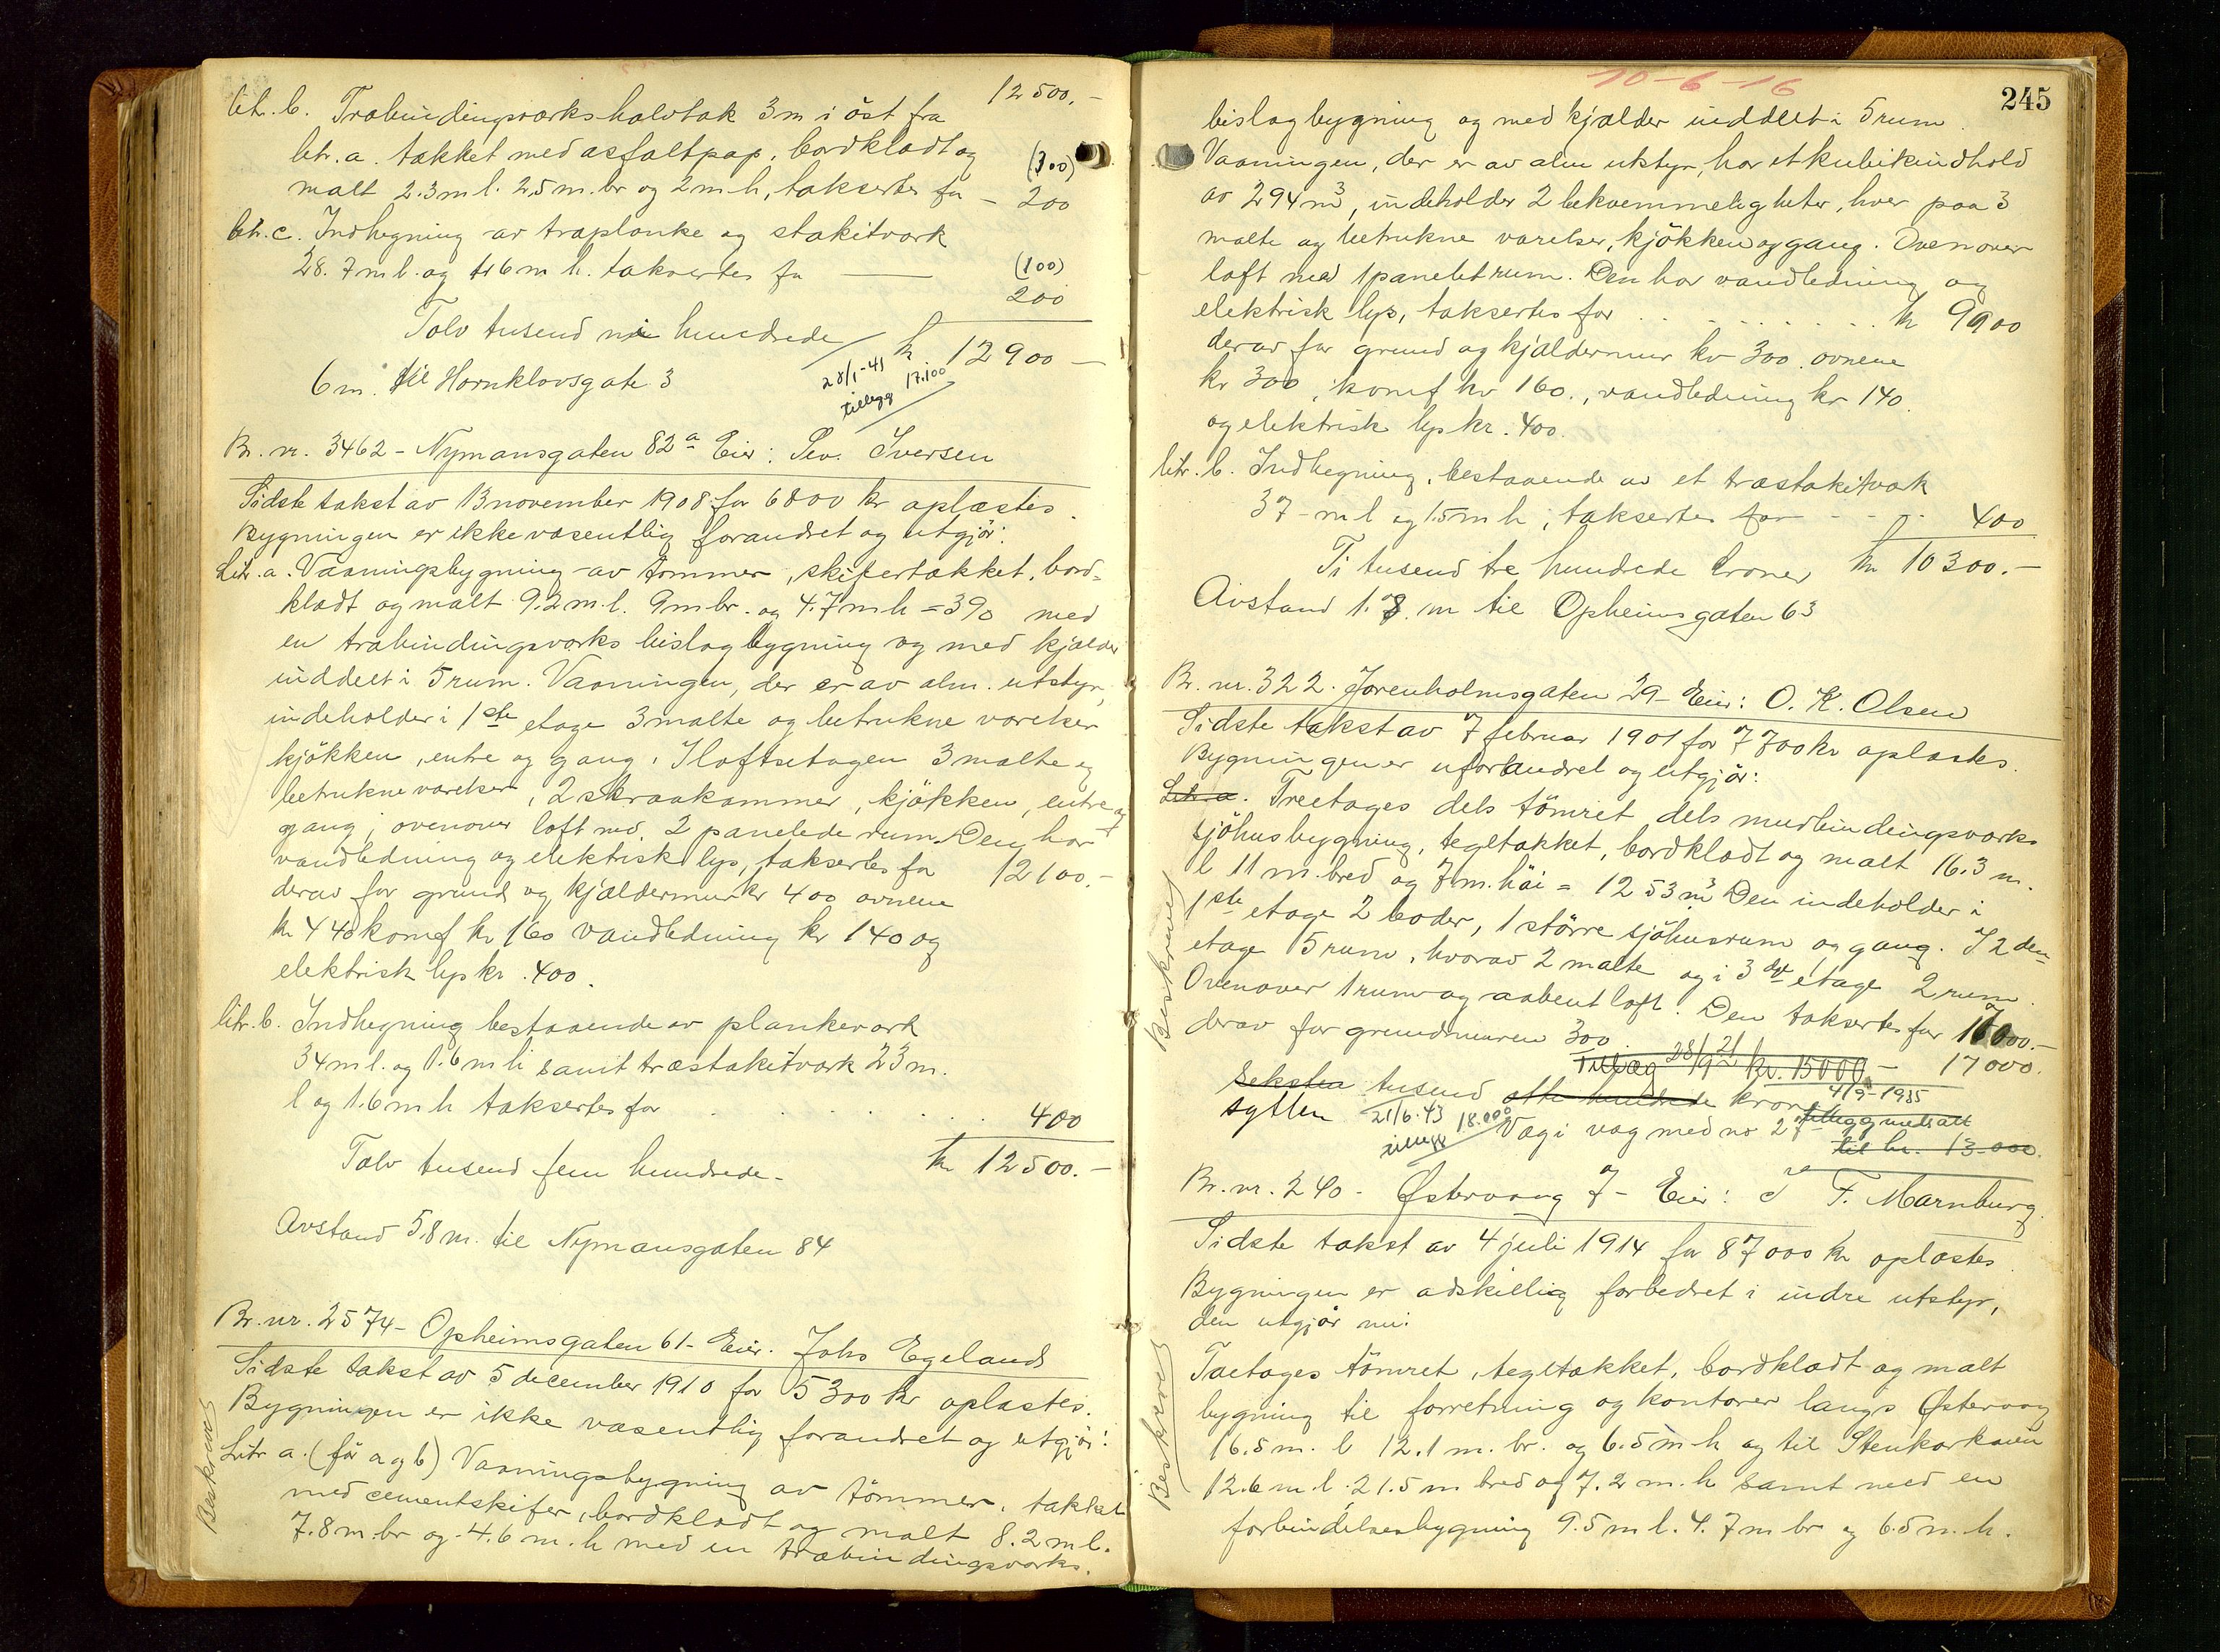 12 500.-
litr. b. Træbindingsværks halvtak 3 m i öst fra
litr. a. tækket med asfaltpap, bordklædt og
(300)
malt 2.3 m l. 2.5 m. br og 2 m h, taksertes for - 200
litr. c. Indhegning av træplanke og stakitværk
28. 7 m l. og 1.6 m h. taksertes for (100)
200
Tolv tusend ni hundrede kr. 12 900 -
28/1-41 tillegg 17.100
6 m. til Hornklovsgate 3
Br. nr. 3462 - Nymansgaten 82 a Eier: Sev. Iversen
Sidste takst av 13 november 1908 for 6800 kr oplæstes.
Bygningen er ikke væsentlig forandret og utgjör:
Litr. a. Vaaningsbygning av tömmer, skifertækket, bord-
klædt og malt 9.2 m. l. 9 m br. og 4.7 m h = 390 med
en træbindingsværks bislagbygning og med kjælder
inddelt i 5 rum. Vaaningen, der er av alm. utstyr,
indeholder i 1ste etage 3 malte og betrukne værelser
kjökken, entre og gang. I loftsetagen 3 malte og
betrukne værelser, 2 skraakammer, kjökken, entre og
gang; ovenover loft med 2 panelede rum. Den har
vandledning og elektrisk lys, taksertes for 12100.-
derav for grund og kjældermur kr 400 ovnene
kr 440 komf kr 160 vandledning kr 140 og
elektrisk lys kr. 400.
litr. b. Indhegning bestaaende av plankeværk
34 m l. og 1.6 m h samt træstakitværk 23 m.
l og 1.6 m h taksertes for 400
Tolv tusend fem hundrede - kr 12500.-
Avstand 5.8 m. til Nymansgaten 84
Br. nr. 2574 - Opheimsgaten 61 - Eier. Johs Egeland
Sidste takst av 5 december 1910 for 5300 kr oplæstes.
Bygningen er ikke væsentlig forandret og utgjör:
Beskreves
Litr a. (för a og b) Vaaningsbygning av tömmer, tækket
med cementskifer, bordklædt og malt 8.2 m l.
7.8 m. br og 4.6 m. h med en træbindingsværks.
10-6-16
245
bislagbygning og med kjælder inddelt i 5 rum.
Vaaningen, der er av alm utstyr, har et kubikindhold
av 294 m3, indeholder 2 bekvemmeligheter, hver paa 3
malte og betrukne værelser, kjökken og gang. Ovenover
loft med 1 panelet rum. Den har vandledning og
elektrisk lys, taksertes for kr 9900
derav for grund og kjældermur kr 300 ovnene
kr 300, komf kr 160., vandledning kr 140.
og elektrisk lys kr. 400.
litr. b. Indhegning, bestaaende av et træstakitværk
37 - m l og 1.5 m h, taksertes for 400
Ti tusend tre hundrede kroner kr 10300.-
Avstand 1.8 m til Opheimsgaten 63
Br. nr. 322. Jorenholmsgaten 29 - Eier: O. K. Olsen
Sidste takst av 7 februar 1901 for 7700 kr oplæstes.
Bygningen er uforandret og utgjör:
Litr. a. Treetages dels tömret dels murbindingsværks
sjöhusbygning, tegltækket, bordklædt og malt 16.3 m.
l 11 m. bred og 7 m. höi = 1253 m3 Den indeholder i
1ste etage 2 boder, 1 större sjöhusrum og gang. I 2den
Beskreves
etage 5 rum, hvorav 2 malte og i 3die etage 2 rum.
Ovenover 1 rum og aabent loft. Den taksertes for 17000.-
derav for grundmuren 300.
Tillæg 28/9 21 kr. 15000 - 17000.
seksten tusend otte hundrede kroner 4/9-1935
sytten 21/6.43 tillegg 18.000 Væg i væg med no 27 tillegg nedsatt
til kr. 13-000.
Br. nr. 240 - Østervaag 7 - Eier: T. F. Marnburg.
Sidste takst av 4 juli 1914 for 87000 kr oplæstes.
Bygningen er adskillig forbedret i indre utstyr,
den utgjör nu:
Beskreves
Toetages tömret, tegltækket, bordklædt og malt
bygning til forretning og kontorer langs Østervaag
16.5 m. l 12.1 m. br. og 6.5 m h og til Stenkarkaien
12.6 m. l. 21.5 m bred og 7.2 m. h samt med en
forbindelsesbygning 9.5 m l. 4.7 m br og 6.5 m. h.